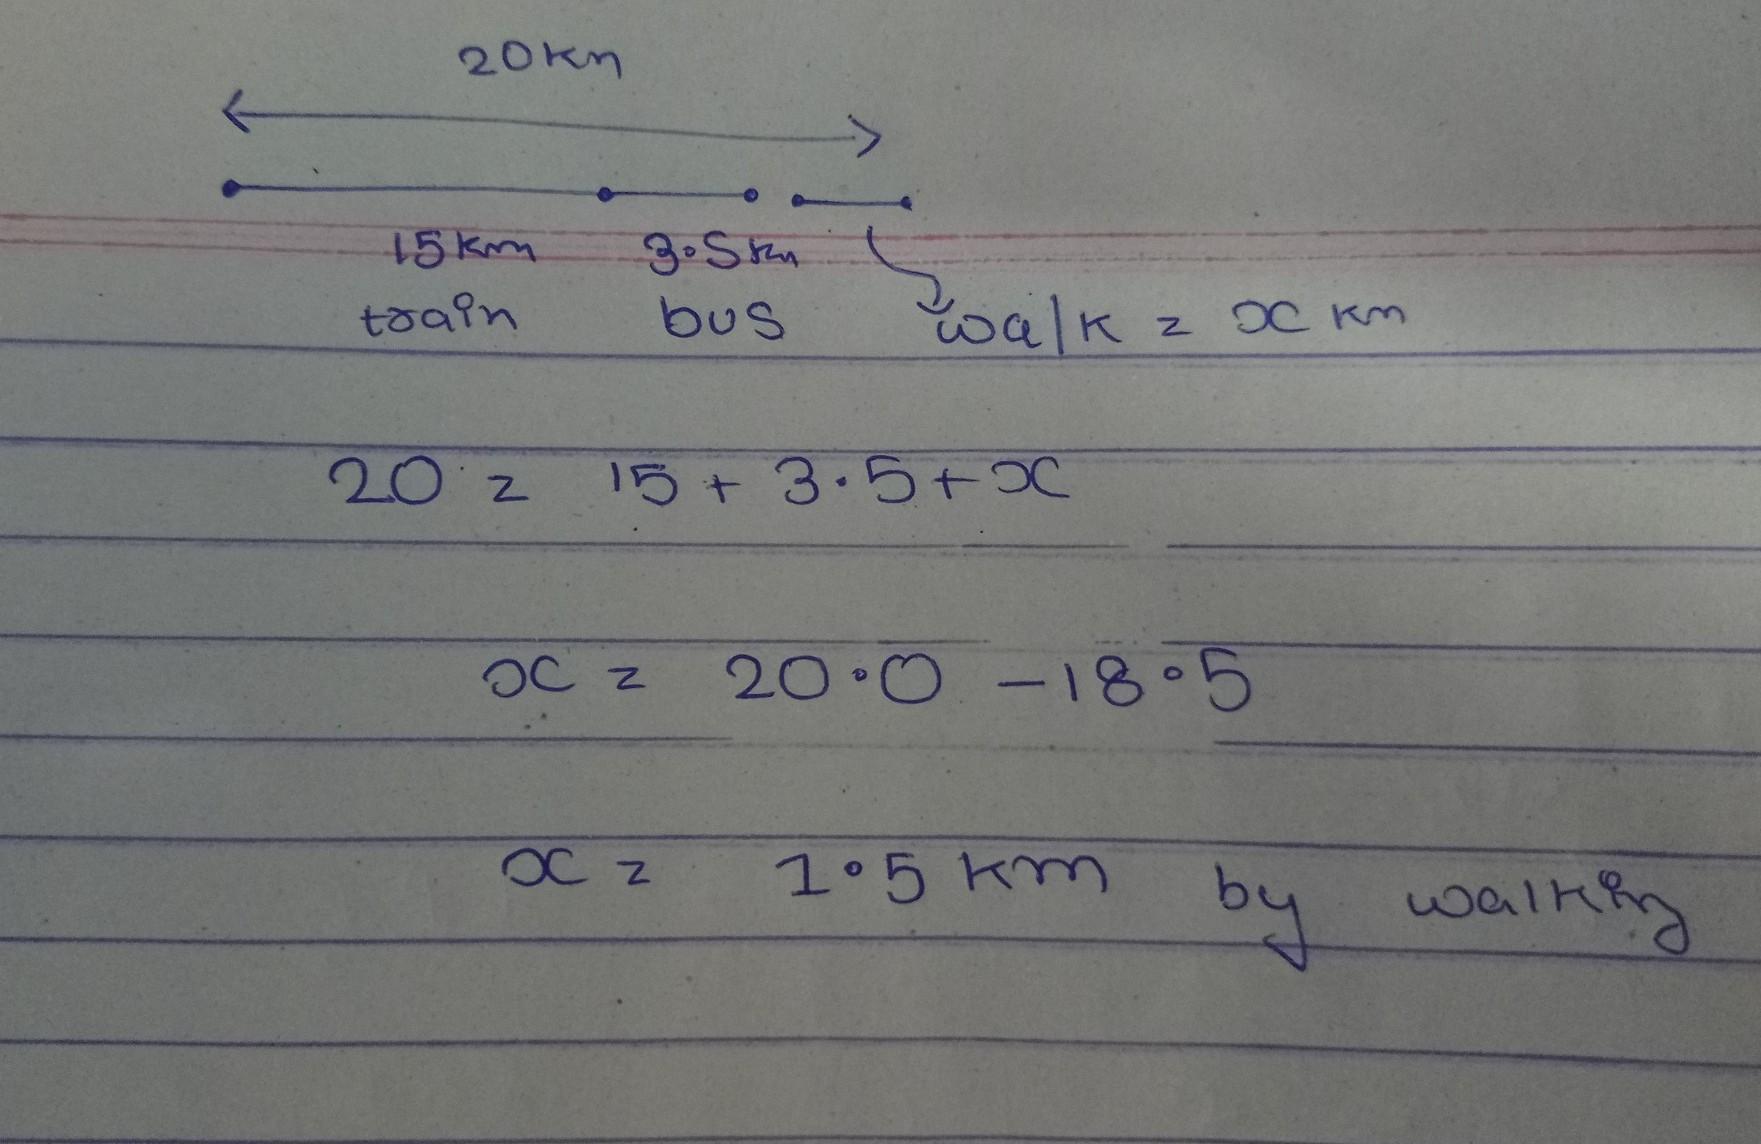 20km
15km 3.5km
train bus walk = x km
20 = 15 + 3.5 + x
x = 20.0 - 18.5
x = 1.5 km by walking